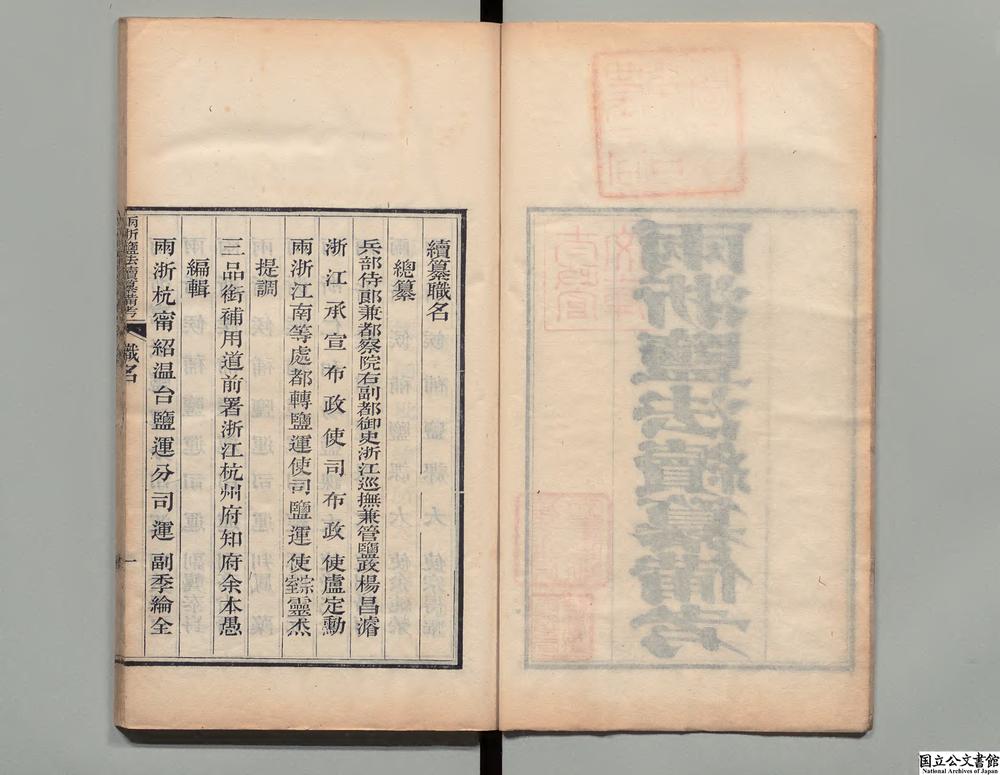 兩浙鹽法續纂備考
續纂職名
總纂
兵部侍郎兼都察院右副都御史浙江巡撫兼管鹽政楊昌濬
浙江承宣布政使司布政使盧定勳
兩浙江南等處都轉鹽運使司鹽運使宗室靈杰
提調
三品銜補用道前署浙江杭州府知府余本愚
編輯
兩浙杭甯紹温台鹽運分司運副季綸全
兩浙鹽法續纂備考
職名
一
国立公文書館
National Archives of Japan